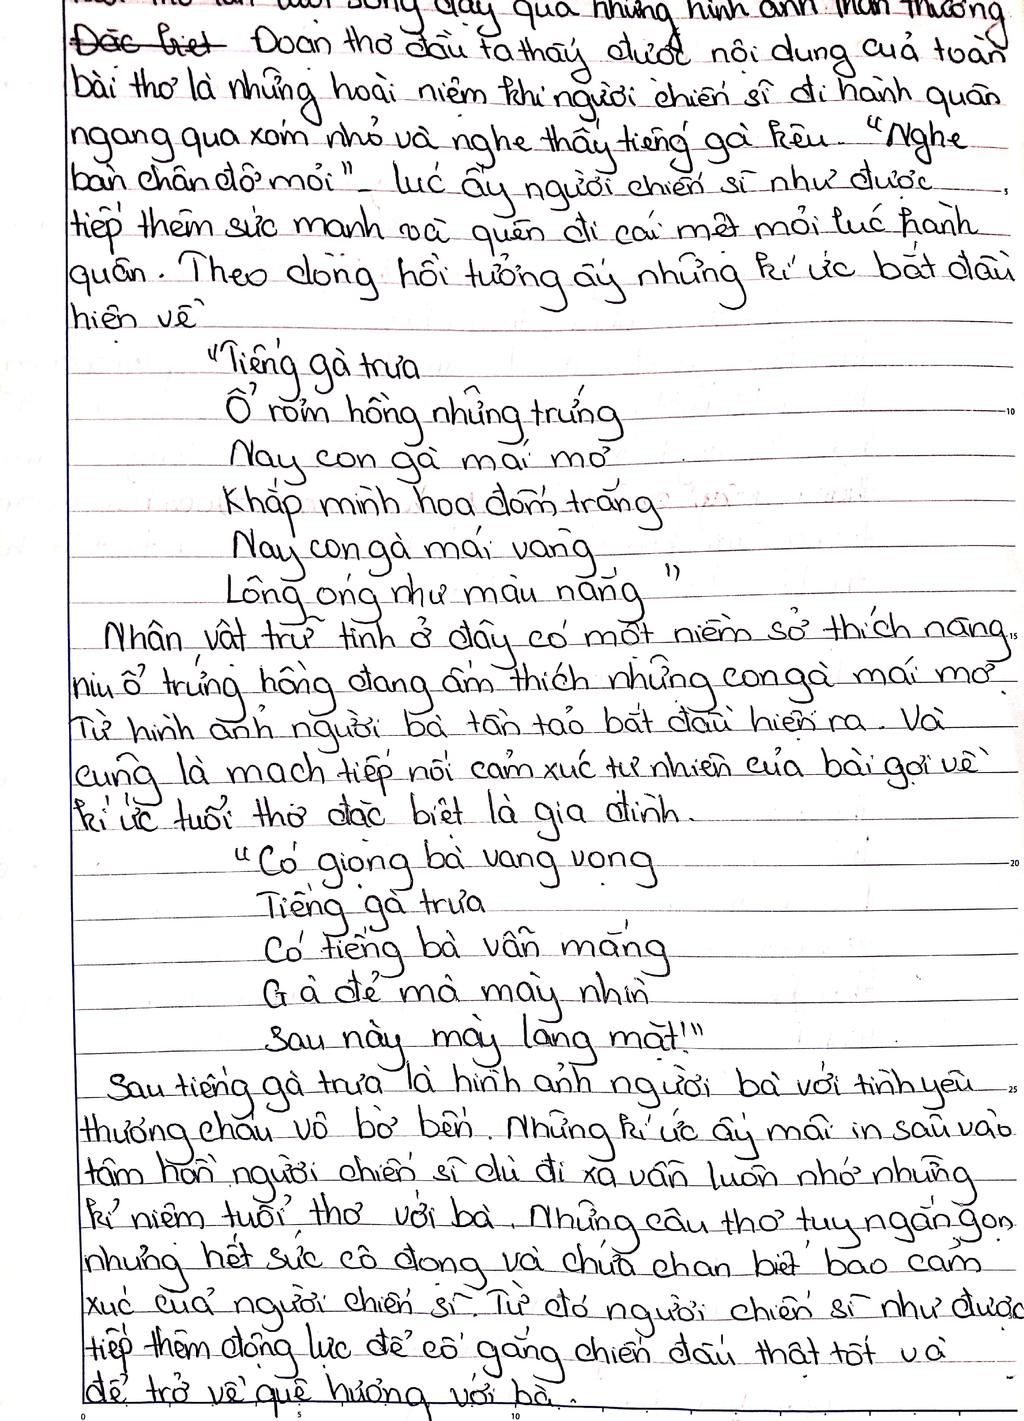 sống dậy qua những hình ảnh thân thương
Đặc biệt Đoạn thơ đầu ta thấy được nội dung của toàn
bài thơ là những hoài niệm khi người chiến sĩ đi hành quân
ngang qua xóm nhỏ và nghe thấy tiếng gà kêu. "Nghe
bàn chân đỡ mỏi" - lúc ấy người chiến sĩ như được
tiếp thêm sức mạnh và quên đi cái mệt mỏi lúc hành
quân. Theo dòng hồi tưởng ấy những kí ức bắt đầu
hiện về
"Tiếng gà trưa
Ổ rơm hồng những trứng
Này con gà mái mơ
Khắp mình hoa đốm trắng
Này con gà mái vàng
Lông óng như màu nắng"
Nhân vật trữ tình ở đây có một niềm sở thích nâng
niu ổ trứng hồng đang ấm thích những con gà mái mơ.
Từ hình ảnh người bà tần tảo bắt đầu hiện ra. Và
cũng là mạch tiếp nối cảm xúc tự nhiên của bài gợi về
kí ức tuổi thơ đặc biệt là gia đình.
"Có giọng bà vang vọng
Tiếng gà trưa
Có tiếng bà vẫn mắng
Gà đẻ mà mày nhìn
Sau này mày lang mặt!"
Sau tiếng gà trưa là hình ảnh người bà với tình yêu
thương cháu vô bờ bến. Những kí ức ấy mãi in sâu vào
tâm hồn người chiến sĩ dù đi xa vẫn luôn nhớ những
kỉ niệm tuổi thơ với bà. Những câu thơ tuy ngắn gọn
nhưng hết sức cô đọng và chứa chan biết bao cảm
xúc của người chiến sĩ. Từ đó người chiến sĩ như được
tiếp thêm động lực để cố gắng chiến đấu thật tốt và
để trở về quê hương với bà.